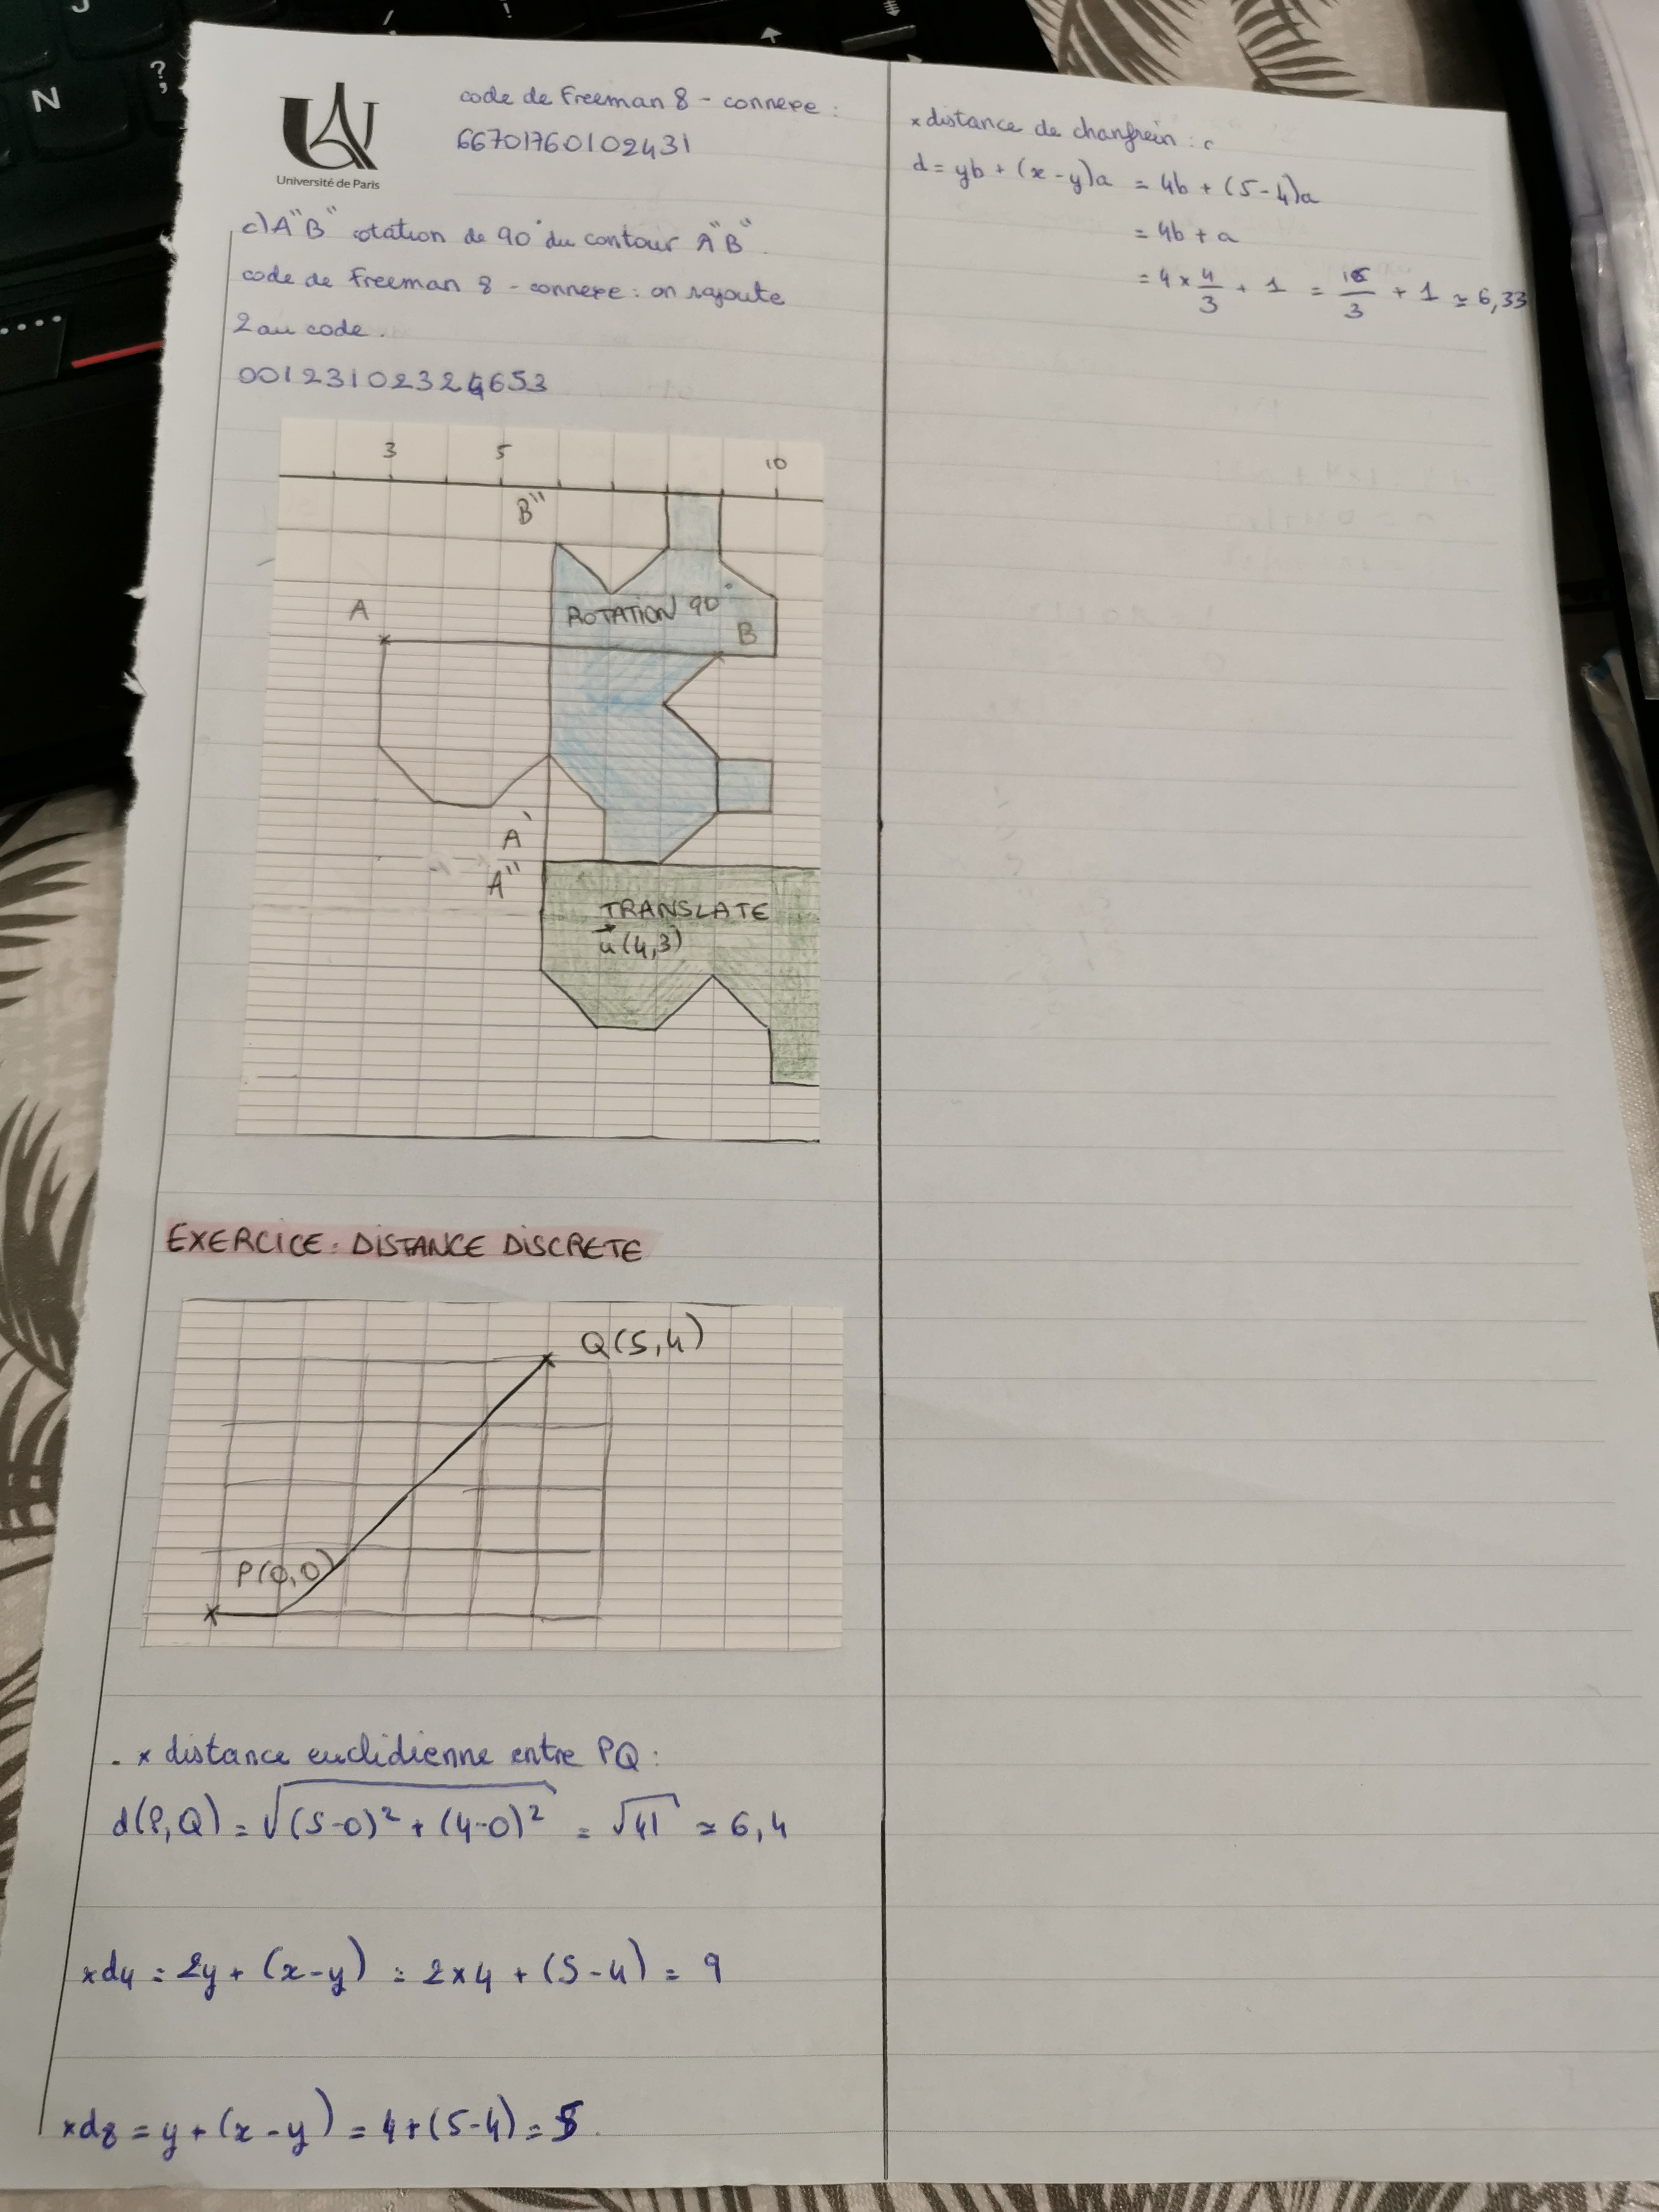 N
?
;
!
UA
Université de Paris
code de Freeman 8 - connexe :
66701760102431
c) A"B" otation de 90° du contour A"B"
code de Freeman 8 - connexe : on rajoute
2 au code.
3 5 10
B"
A
ROTATION 90°
B
A'
A"
TRANSLATE
u(4,3)
EXERCICE : DISTANCE DISCRETE
Q(5,4)
P(0,0)
. x distance euclidienne entre PQ :
d(P,Q) = √(5-0)² + (4-0)² = √41 ≃ 6,4
x d4 = 2y + (x-y) = 2x4 + (5-4) = 9
x d8 = y + (x-y) = 4+(5-4) = 5.
x distance de chanfrein :
d = yb + (x-y)a = 4b + (5-4)a
= 4b + a
= 4 x 4/3 + 1 = 16/3 + 1 ≃ 6,33